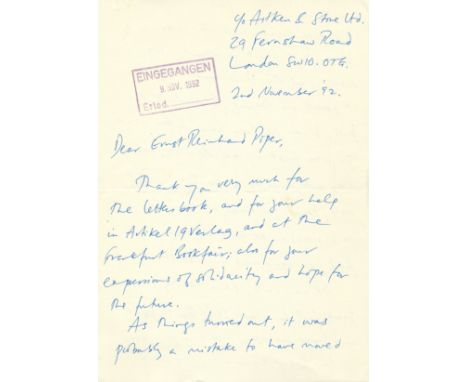 c/o Aitken & Stone Ltd.
29 Fernshaw Road
London SW10. OTG.
2nd November '92.
EINGEGANGEN
9. NOV. 1992
Erled.
Dear Ernst Reinhard Piper,
Thank you very much for
the letterbook, and for your help
in Artikel 19 Verlag, and at the
Frankfurt Bookfair; also for your
expressions of solidarity and hope for
the future.
As things turned out, it was
probably a mistake to have moved